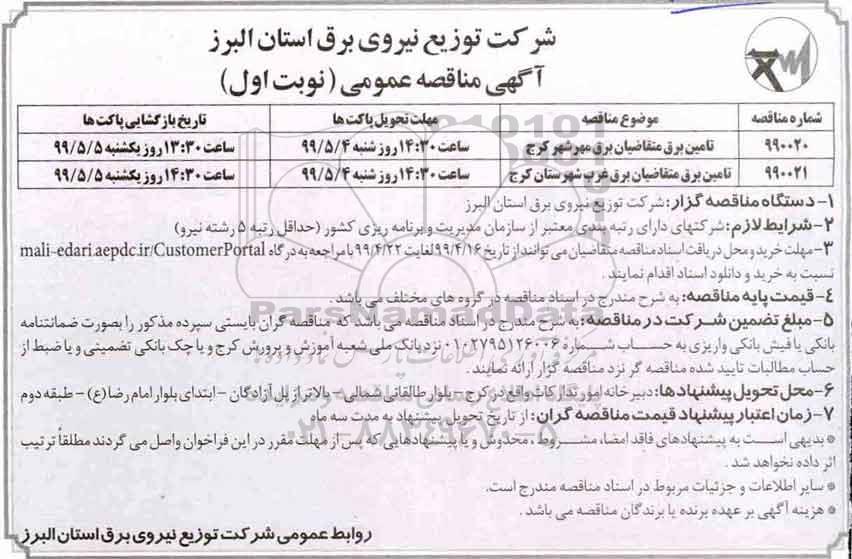 شرکت توزیع نیروی برق استان البرز
آگهی مناقصه عمومی (نوبت اول)
شماره مناقصه موضوع مناقصه مهلت تحویل پاکت ها تاریخ بازگشایی پاکت ها
۹۹۰۰۲۰ تامین برق متقاضیان برق مهرشهر کرج ساعت ۱۴:۳۰ روز شنبه ۹۹/۵/۴ ساعت ۱۳:۳۰ روز یکشنبه ۹۹/۵/۵
۹۹۰۰۲۱ تامین برق متقاضیان برق غرب شهرستان کرج ساعت ۱۴:۳۰ روز شنبه ۹۹/۵/۴ ساعت ۱۴:۳۰ روز یکشنبه ۹۹/۵/۵
۱- دستگاه مناقصه گزار: شرکت توزیع نیروی برق استان البرز
۲- شرایط لازم: شرکتهای دارای رتبه بندی معتبر از سازمان مدیریت و برنامه ریزی کشور (حداقل رتبه ۵ رشته نیرو)
۳- مهلت خرید و محل دریافت اسناد مناقصه متقاضیان می توانند از تاریخ ۹۹/۴/۱۶ لغایت ۹۹/۴/۲۲ با مراجعه به درگاه mali-edari.aepdc.ir/CustomerPortal
نسبت به خرید و دانلود اسناد اقدام نمایند .
۴- قیمت پایه مناقصه: به شرح مندرج در اسناد مناقصه در گروه های مختلف می باشد .
۵- مبلغ تضمین شرکت در مناقصه: به شرح مندرج در اسناد مناقصه می باشد که مناقصه گران بایستی سپرده مذکور را بصورت ضمانتنامه
بانکی یا فیش بانکی واریزی به حساب شماره ۰۱۰۲۷۹۵۱۲۶۰۰۶ نزد بانک ملی شعبه آموزش و پرورش کرج و یا چک بانکی تضمینی و یا ضبط از
حساب مطالبات تایید شده مناقصه گر نزد مناقصه گزار ارائه نمایند .
۶- محل تحویل پیشنهادها: دبیرخانه امور تدارکات واقع در کرج - بلوار طالقانی شمالی - بالاتر از پل آزادگان - ابتدای بلوار امام رضا (ع) - طبقه دوم
۷- زمان اعتبار پیشنهاد قیمت مناقصه گران: از تاریخ تحویل پیشنهاد به مدت سه ماه
* بدیهی است به پیشنهادهای فاقد امضاء، مشروط ، مخدوش و یا پیشنهادهایی که پس از مهلت مقرر در این فراخوان واصل می گردند مطلقاً ترتیب
اثر داده نخواهد شد .
* سایر اطلاعات و جزئیات مربوط در اسناد مناقصه مندرج است.
* هزینه آگهی بر عهده برنده یا برندگان مناقصه می باشد .
روابط عمومی شرکت توزیع نیروی برق استان البرز
ParsNamadData
۰۲۱-۸۸۳۴۹۶۷۰-۵